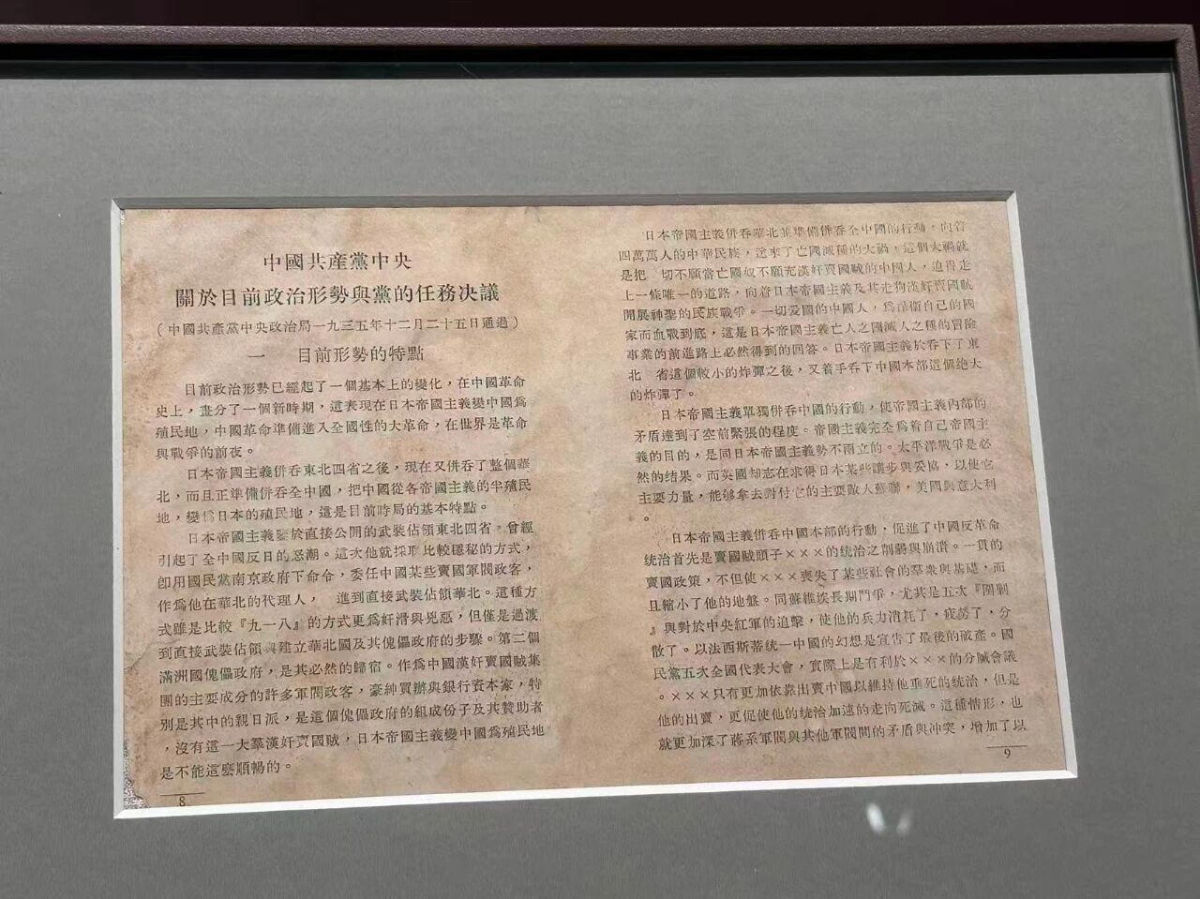 中國共產黨中央
關於目前政治形勢與黨的任務決議
(中國共產黨中央政治局一九三五年十二月二十五日通過)
一　目前形勢的特點
目前政治形勢已經起了一個基本上的變化，在中國革命
史上，畫分了一個新時期，這表現在日本帝國主義變中國爲
殖民地，中國革命準備進入全國性的大革命，在世界是革命
與戰爭的前夜。
日本帝國主義併吞東北四省之後，現在又併吞了整個華
北，而且正準備併吞全中國，把中國從各帝國主義的半殖民
地，變爲日本的殖民地，這是目前時局的基本特點。
日本帝國主義鑒於直接公開的武裝佔領東北四省，曾經
引起了全中國反日的怒潮。這次他就採取比較隱秘的方式，
卽用國民黨南京政府下命令，委任中國某些賣國軍閥政客，
作爲他在華北的代理人，　進到直接武裝佔領華北。這種方
式雖是比較『九一八』的方式更爲奸滑與兇惡，但僅是過渡
到直接武裝佔領與建立華北國及其傀儡政府的步骤。第二個
滿洲國傀儡政府，是其必然的歸宿。作爲中國漢奸賣國賊集
團的主要成分的許多軍閥政客，豪紳買辦與銀行資本家，特
別是其中的親日派，是這個傀儡政府的組成份子及其贊助者
，沒有這一大羣漢奸賣國賊，日本帝國主義變中國爲殖民地
是不能這麼順暢的。
8
日本帝國主義併吞華北並準備併吞全中國的行動，向着
四萬萬人的中華民族，送來了亡國滅種的大禍，這個大禍就
是把　切不願當亡國奴不願充漢奸賣國賊的中國人，迫得走
上一條唯一的道路，向着日本帝國主義及其走狗漢奸賣國賊
開展神聖的民族戰爭。一切爱國的中國人，爲保衛自己的國
家而血戰到底，這是日本帝國主義亡人之國滅人之種的冒險
事業的前進路上必然得到的回答。日本帝國主義於吞下了東
北　省這個較小的炸彈之後，又着手吞下中國本部這個绝大
的炸彈了。
日本帝國主義單獨併吞中國的行動，使帝國主義內部的
矛盾達到了空前緊張的程度。帝國主義完全爲着自己帝國主
義的目的，是同日本帝國主義勢不兩立的。太平洋戰爭是必
然的结果。而英國却志在求得日本某些讓步與妥協，以使它
主要力量，能够拿去對付它的主要敵人蘇聯，美國與意大利
。
日本帝國主義併吞中國本部的行動，促進了中國反革命
統治首先是賣國賊頭子×××的統治之削弱與崩潰。一貫的
賣國政策，不但使×××喪失了某些社會的羣衆與基礎，而
且縮小了他的地盤。同蘇維埃長期鬥爭，尤其是五次『圍剿
』與對於中央紅軍的追擊，使他的兵力消耗了，疲勞了，分
散了。以法西斯蒂統一中國的幻想是宣告了最後的破產。國
民黨五次全國代表大會，實際上是有利於×××的分贓會議
。×××只有更加依靠出賣中國以維持他垂死的統治，但是
他的出賣，更促使他的統治加速的走向死滅。這種情形，也
就更加深了蔣系軍閥與其他軍閥間的矛盾與冲突，增加了以
9